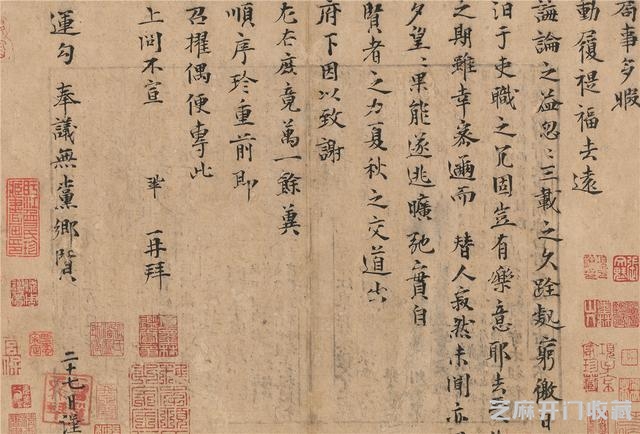 局事多暇
動履禔福去遠
誨論之益忽〻三載之久跧處窮徼日
汨于吏職之冗固豈有樂意耶去
之期雖幸密邇而 替人寂然未聞亦
夕望〻果能遂逃曠弛之責自
賢者之力夏秋之交道出
府下因以致謝
左右庶竟萬一餘冀
順序珍重前即
召擢偶便專此
上問不宣 鞏 再拜
運勾 奉議無黨鄉賢
二十七日謹
芝麻开门收藏